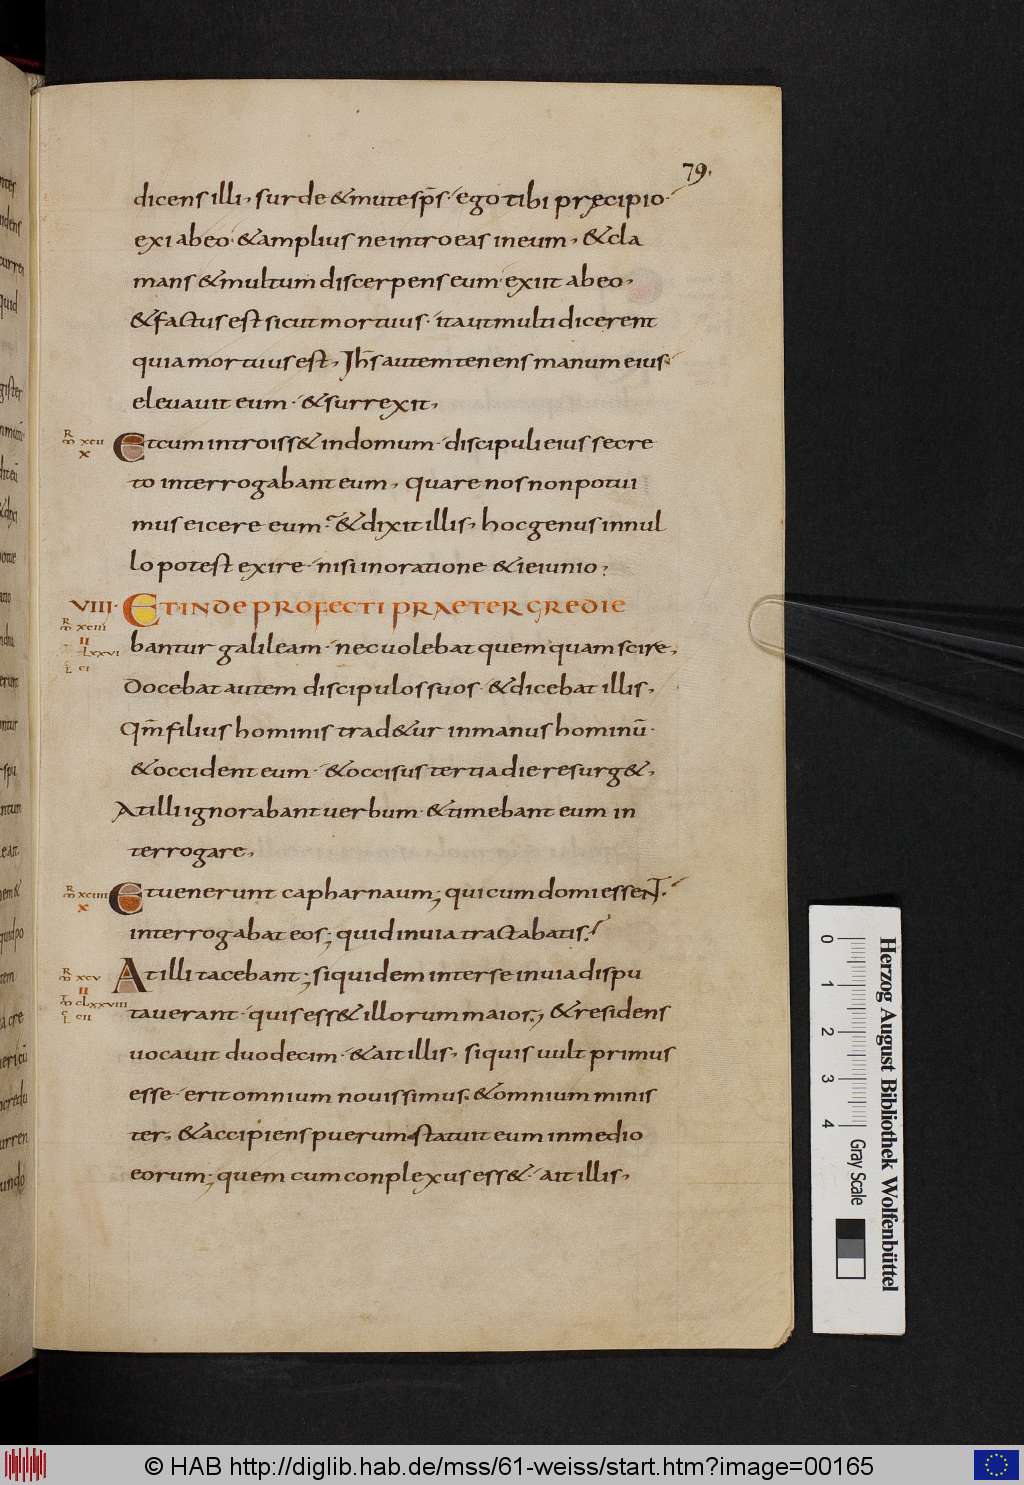 79.
dicens illi, surde & mute sp̄s· ego tibi pręcipio·
exi ab eo· & amplius ne introeas in eum, & cla
mans & multum discerpens eum exiit ab eo,
& factus est sicut mortuus· ita ut multi dicerent
quia mortuus est, Ih̄s autem tenens manum eius·
eleuauit eum· & surrexit,
R
m xcii
x
Et cum introiss& in domum· discipuli eius secre
to interrogabant eum, quare nos non potui
mus eicere eum? & dixit illis, hoc genus in nul
lo potest exire· nisi in oratione & ieiunio;
VIII· ET INDE PROFECTI PRAETERGREDIE
R
m xciii
II
LXXVI
L CI
bantur galileam· nec uolebat quemquam scire,
docebat autem discipulos suos· & dicebat illis,
Qm̄ filius hominis trad&ur in manus hominū·
& occident eum· & occisus tertia die resurg&,
At illi ignorabant uerbum· & timebant eum in
terrogare,
R
m xciiii
x
Et uenerunt capharnaum; qui cum domi essenT·
interrogabat eos; quid in uia tractabatis?
R
m xcv
II
m CLXXVIII
L CII
At illi tacebant; siquidem inter se in uia dispu
tauerant· quis ess& illorum maior; & residens
uocauit duodecim· & ait illis, si quis uult primus
esse· erit omnium nouissimus· & omnium minis
ter, & accipiens puerum statuit eum in medio
eorum; quem cum conplexus ess&· ait illis,
0 1 2 3 4
Gray Scale
Herzog August Bibliothek Wolfenbüttel
© HAB http://diglib.hab.de/mss/61-weiss/start.htm?image=00165